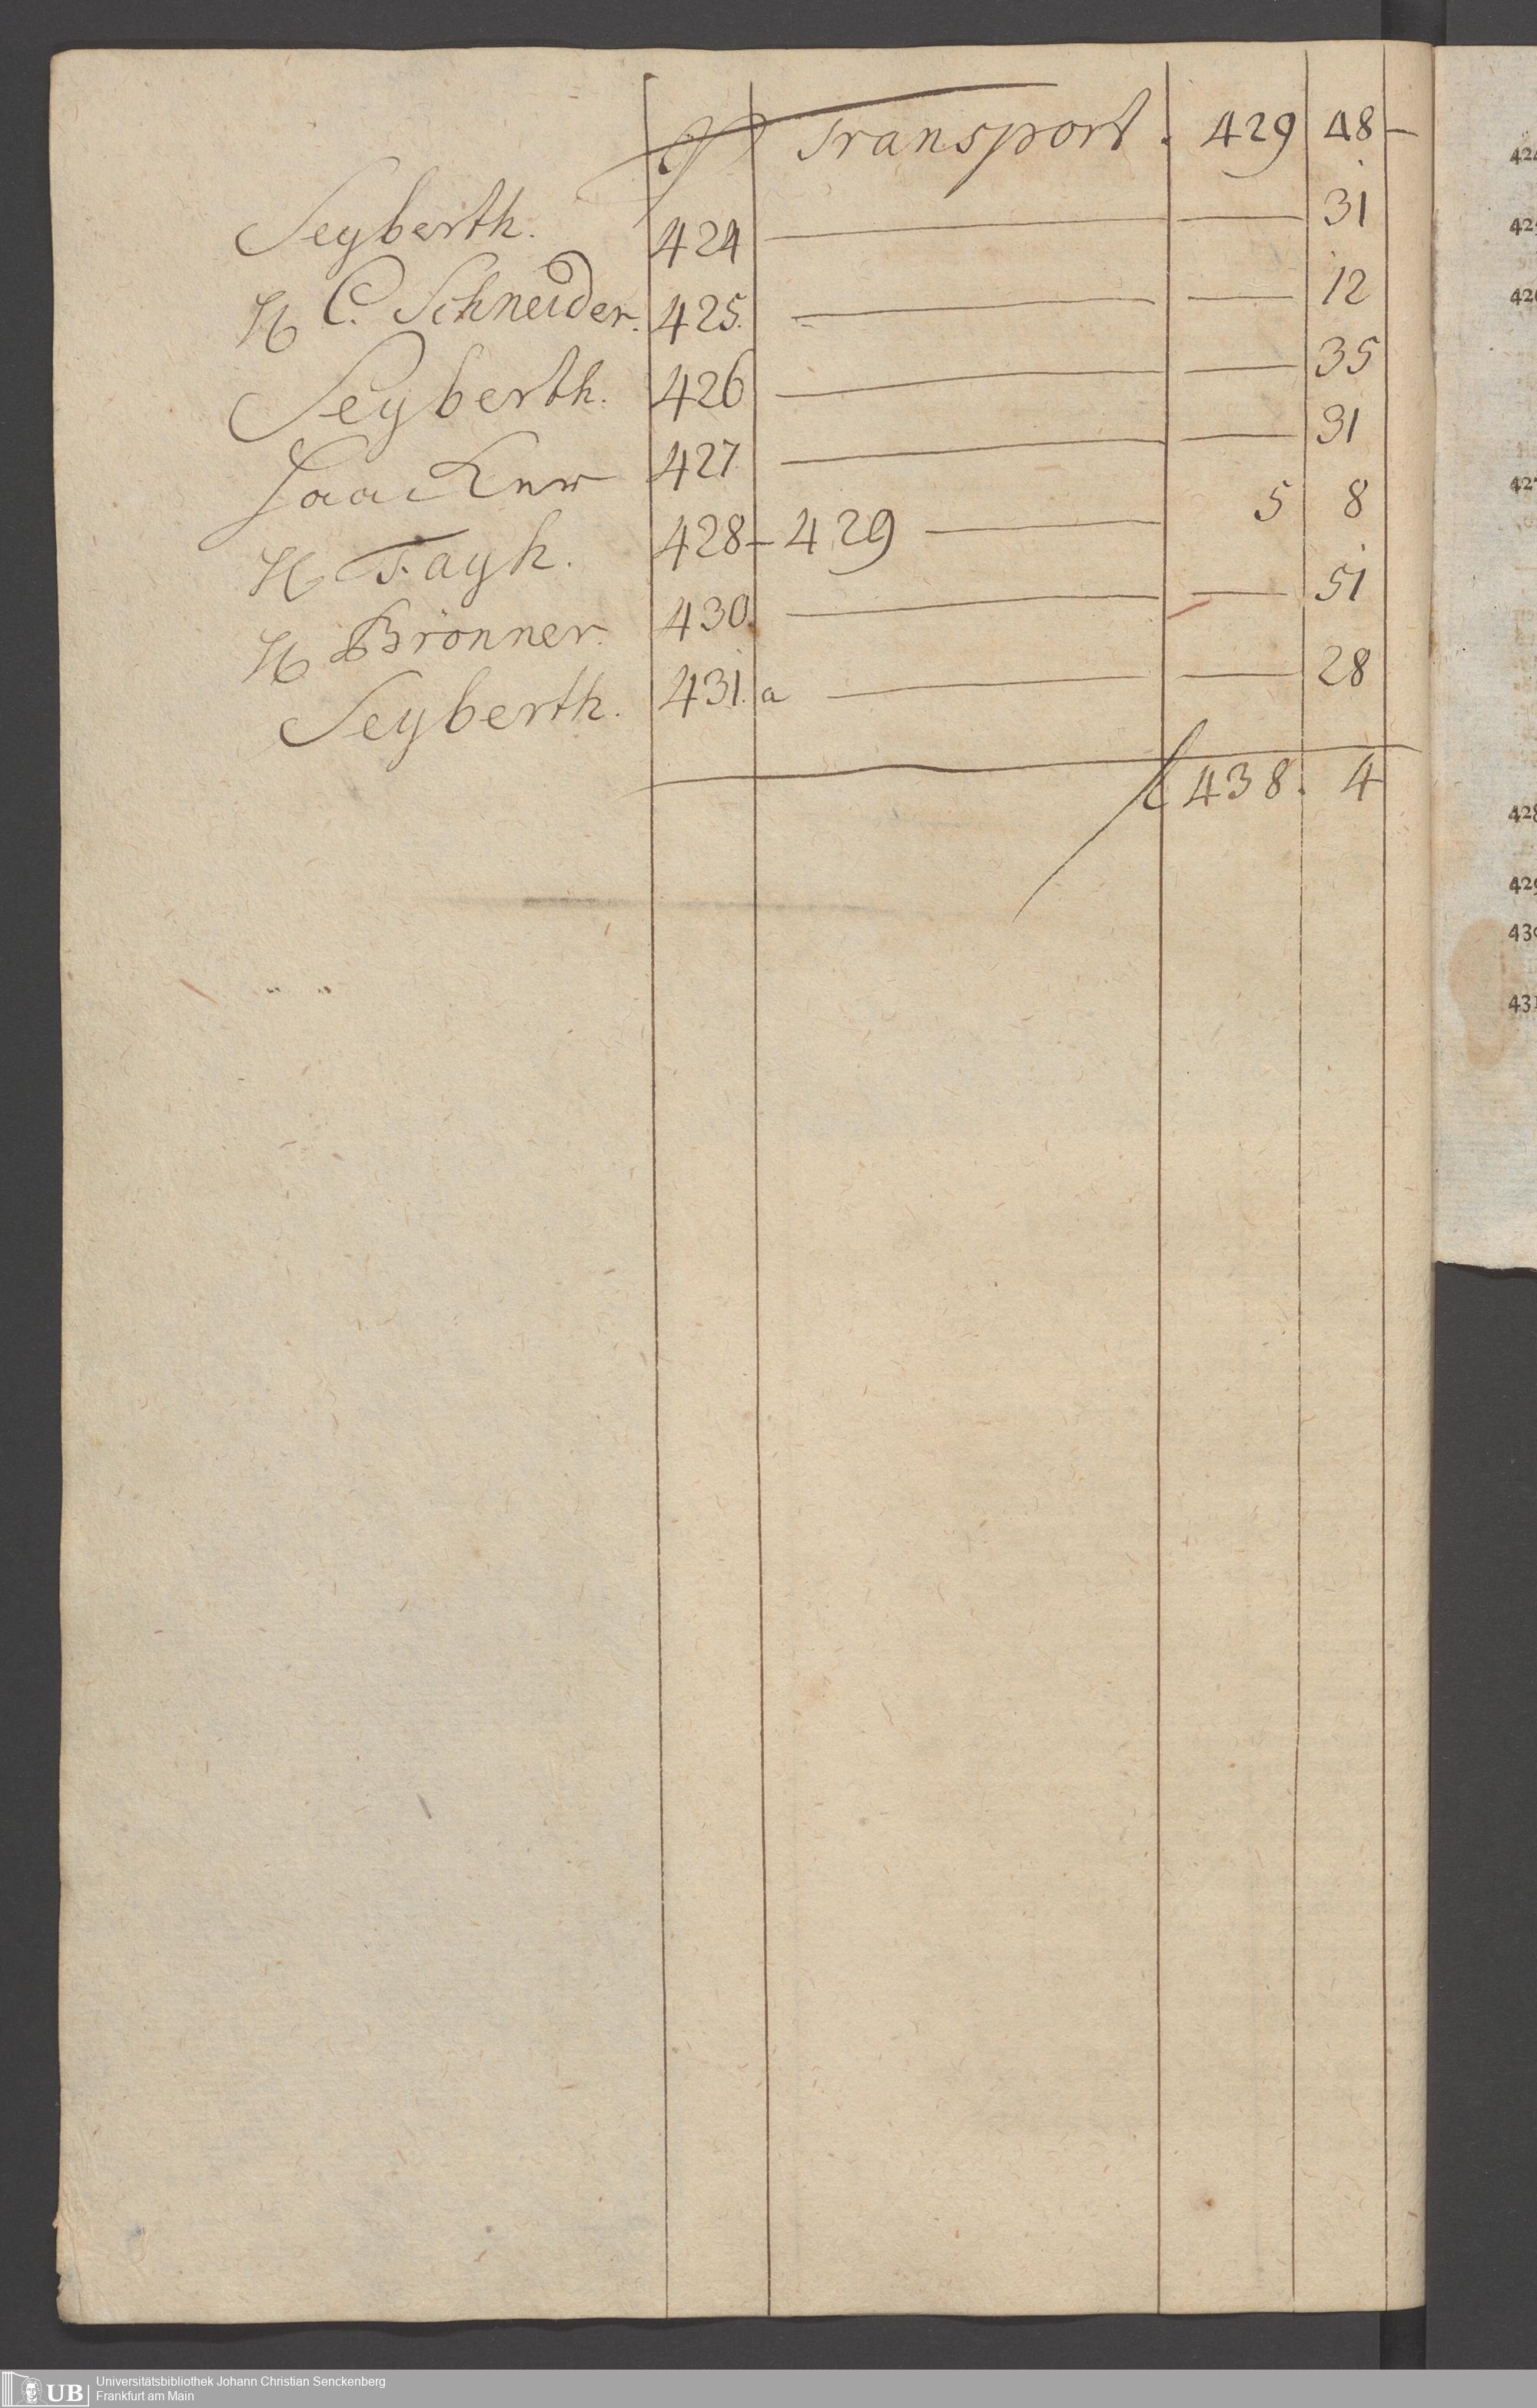 Transport. 429 48
Seyberth. 424 31
H C. Schneider. 425. 12
Seyberth. 426 35
427 31
H Fayh. 428 - 429 5 8
H Brönner. 430. 51
Seyberth. 431. a 28
f 438. 4
424
425
426
427
428
429
430
431
UB Universitätsbibliothek Johann Christian Senckenberg
Frankfurt am Main